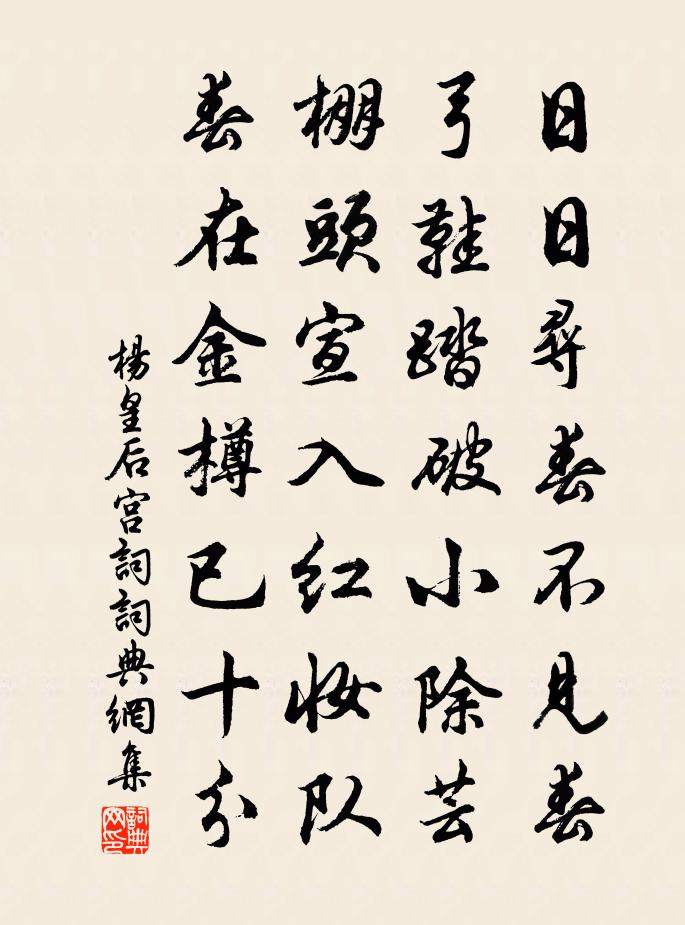 日日尋春不見春
弓鞋踏破小除芸
棚頭宣入红妆队
春在金樽已十分
楊皇后宫詞詞典網集
詞典网印